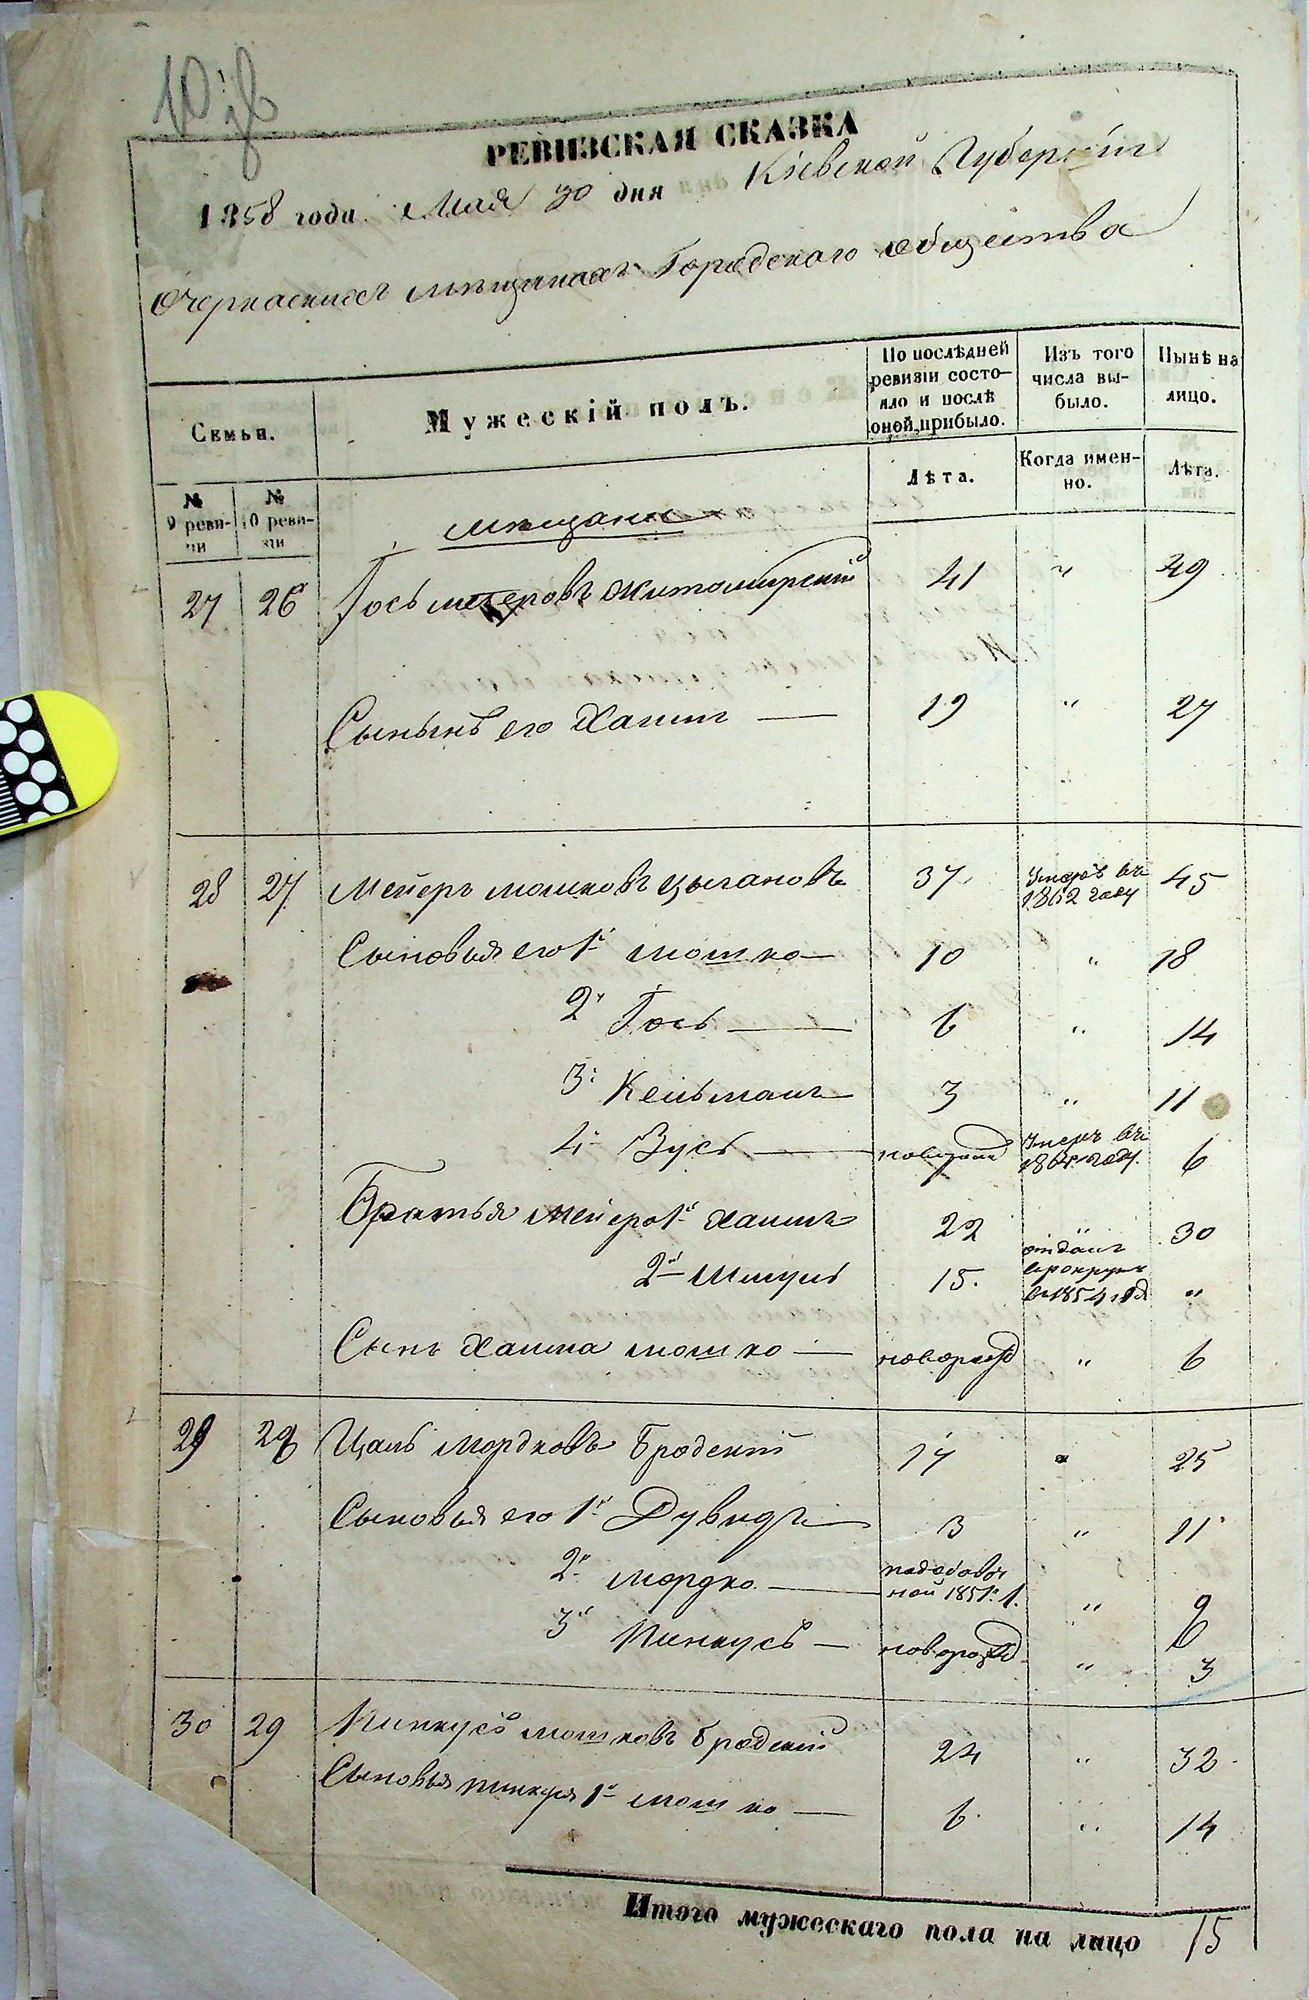 РЕВИЗСКАЯ СКАЗКА
1858 года Мая 30 дня Кіевской Губерніи
О черкаскихъ мѣщанахъ Городскаго общества
Семьи.
Мужескій полъ.
По послѣдней ревизіи состояло и послѣ оной прибыло.
Изъ того числа выбыло.
Нынѣ на лицо.
Лѣта.
Когда именно.
Лѣта.
№ 9 ревизіи
№ 10 ревизіи
мѣщане
27 26 Іось Мееровъ Житомирскій 41 " 49
Сынъ его Хаимъ — 19 " 27
28 27 Мейеръ Мошковъ Цыгановъ 37 Умеръ въ 1862 году 45
Сыновья его 1й Мошко — 10 " 18
2й Іось — 6 " 14
3й Кельманъ — 3 " 11
4й Зусь — новорожд Умеръ въ году 6
Братья Мейера 1й Хаимъ 22 " 30
2й Шмуль 15. отданъ в рекруты в 1854 год "
Сынъ Хаима Мошко — новорожд " 6
29 28 Цаль Мордковъ Бродскій 17 " 25
Сыновья его 1й Дувидъ — 3 " 11
2й Мордко — 1851 "
3й Пинкусъ — новорожд " 3
30 29 Пинкусъ Мошковъ Бродскій 24 " 32
Сыновья Пинкуса 1й Мошко — 6 " 14
Итого мужескаго пола на лицо 15